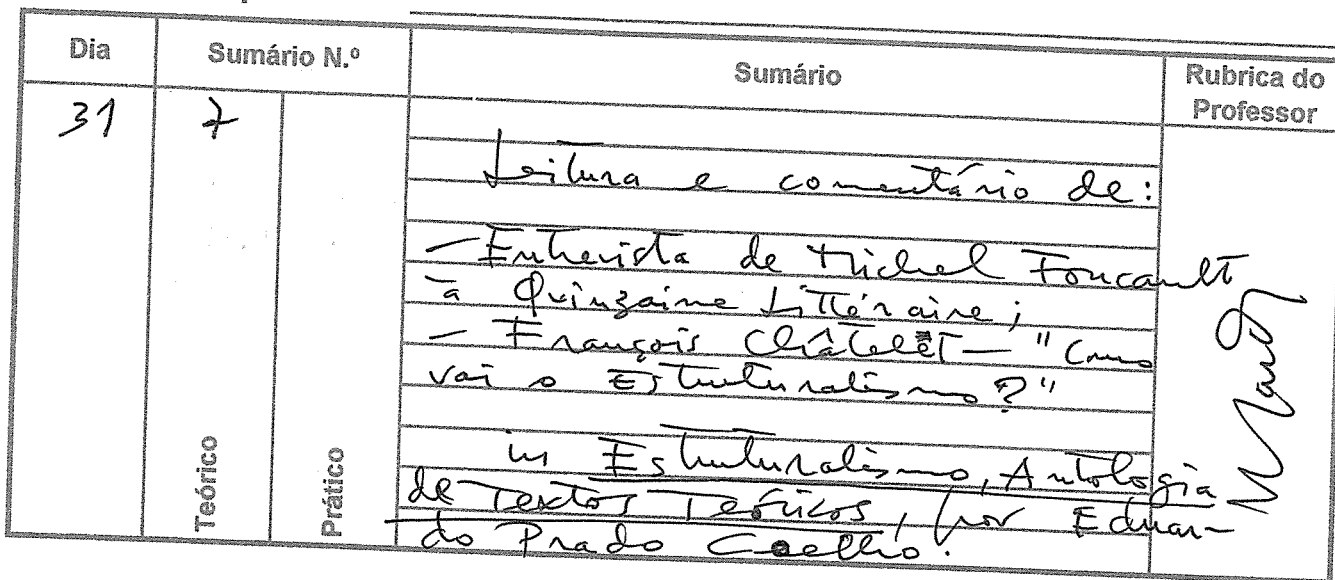 Dia Sumário N.º Sumário Rubrica do Professor
31 7
Leitura e comentário de:
— Entrevista de Michel Foucault
à Quinzaine Littéraire;
— François Châtelet — "Como
vai o Estruturalismo?"
in Estruturalismo, Antologia
de Textos Teóricos, por Eduar-
do Prado Coelho.
Teórico Prático